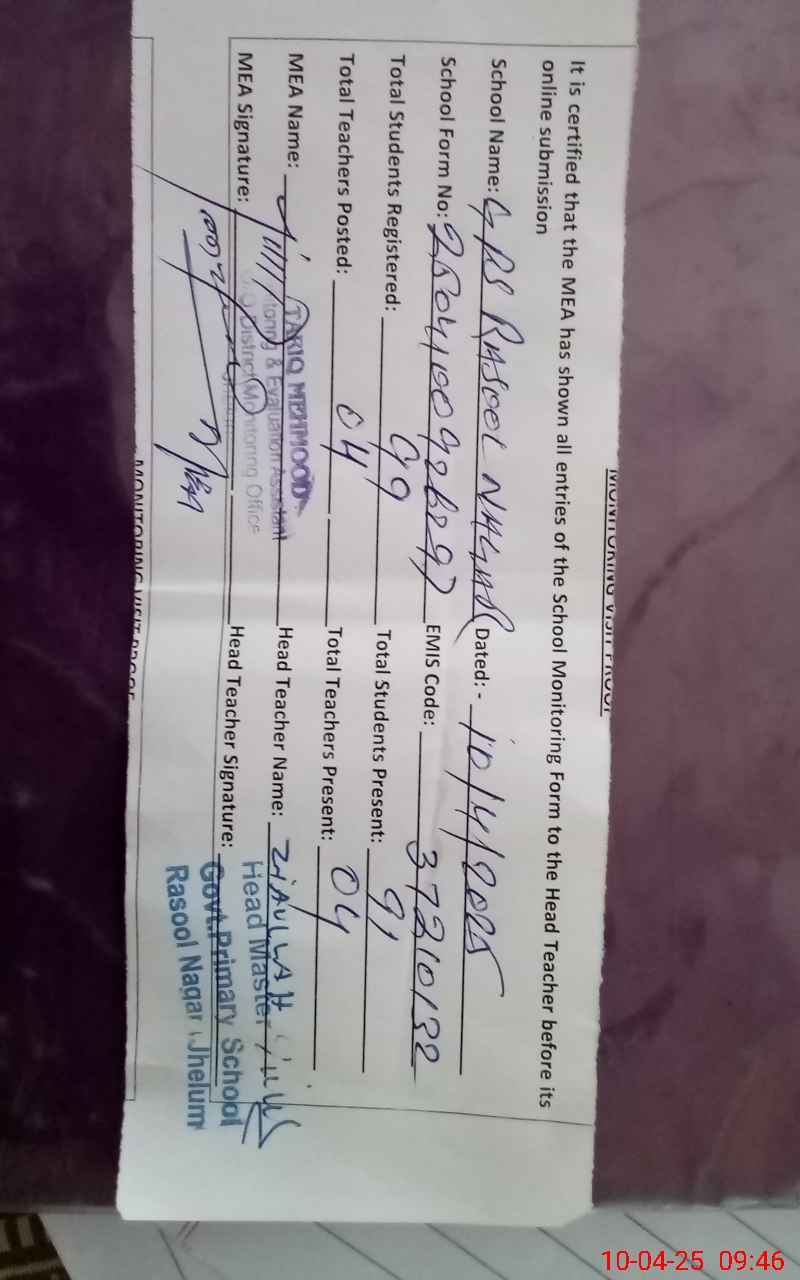 MONITORING VISIT PROOF
It is certified that the MEA has shown all entries of the School Monitoring Form to the Head Teacher before its
online submission
School Name: GPS RASOOL NAGAR Dated: - 10/4/2025
School Form No: EMIS Code: 37210132
Total Students Registered: 99 Total Students Present: 91
Total Teachers Posted: 04 Total Teachers Present: 04
MEA Name: Head Teacher Name: ZIAULLAH
TARIQ MEHMOOD
Monitoring & Evaluation Assistant
District Monitoring Office
MEA Signature: Head Teacher Signature:
Head Master
Govt. Primary School
Rasool Nagar Jhelum
MONITORING VISIT PROOF
10-04-25 09:46